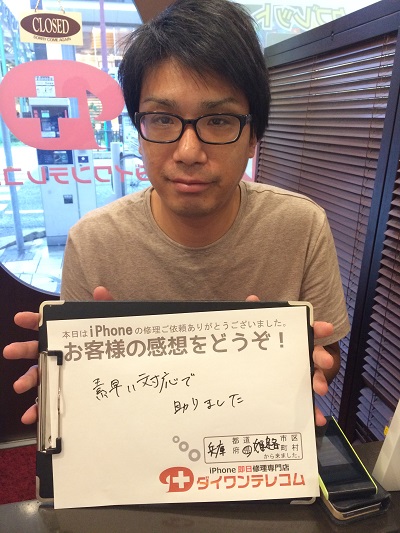 CLOSED
ダイワンテレコム
本日はiPhoneの修理ご依頼ありがとうございました。
お客様の感想をどうぞ！
素早い対応で
助りました
兵庫 都道府県 姫路 市区町村
から来ました。
iPhone 即日修理専門店
ダイワンテレコム